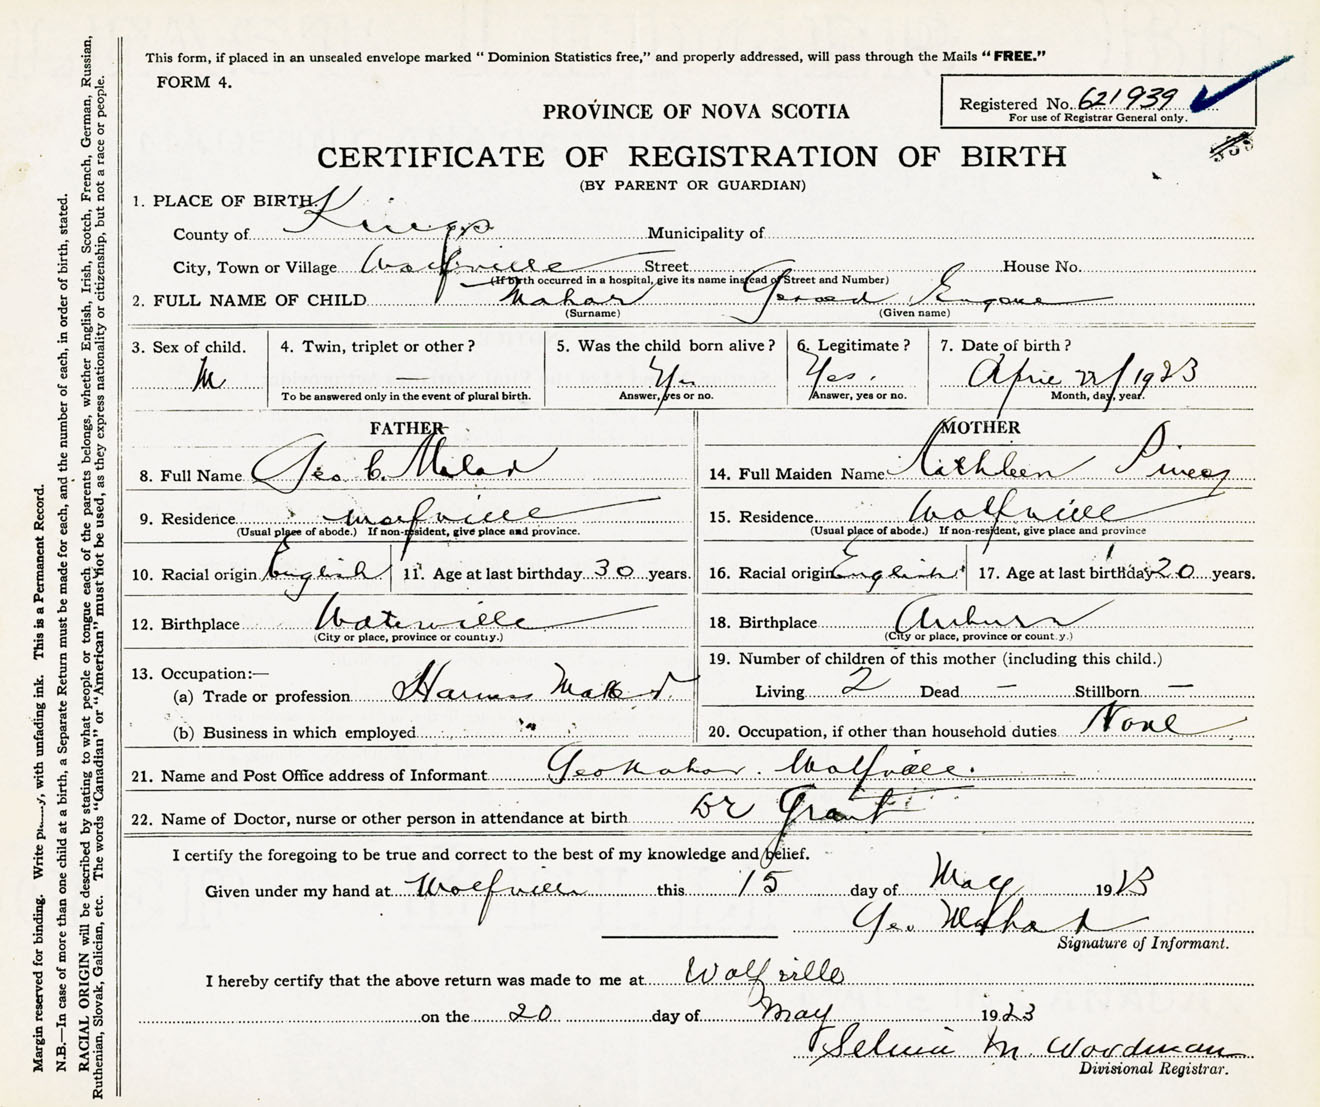 This form, if placed in an unsealed envelope marked “ Dominion Statistics free,” and properly addressed, will pass through the Mails “ FREE.”
FORM 4.
Registered No. 621939
For use of Registrar General only.
PROVINCE OF NOVA SCOTIA
CERTIFICATE OF REGISTRATION OF BIRTH
(BY PARENT OR GUARDIAN)
1. PLACE OF BIRTH
County of Kings Municipality of
City, Town or Village Wolfville Street House No.
(If birth occurred in a hospital, give its name instead of Street and Number)
2. FULL NAME OF CHILD Mahar Gerald Eugene
(Surname) (Given name)
3. Sex of child. 4. Twin, triplet or other ? 5. Was the child born alive ? 6. Legitimate ? 7. Date of birth ?
M — Yes Yes. April 22/1923
To be answered only in the event of plural birth. Answer, yes or no. Answer, yes or no. Month, day, year.
FATHER MOTHER
8. Full Name Geo C. Mahar 14. Full Maiden Name Kathleen Pineo
9. Residence Wolfville 15. Residence Wolfville
(Usual place of abode.) If non-resident, give place and province. (Usual place of abode.) If non-resident, give place and province
10. Racial origin English 11. Age at last birthday 30 years. 16. Racial origin English 17. Age at last birthday 20 years.
12. Birthplace Waterville 18. Birthplace Auburn
(City or place, province or county.) (City or place, province or county.)
13. Occupation:— 19. Number of children of this mother (including this child.)
(a) Trade or profession Harness Maker Living 2 Dead — Stillborn —
(b) Business in which employed " 20. Occupation, if other than household duties None
21. Name and Post Office address of Informant Geo Mahar. Wolfville.
22. Name of Doctor, nurse or other person in attendance at birth Dr Grant
I certify the foregoing to be true and correct to the best of my knowledge and belief.
Given under my hand at Wolfville this 15 day of May 1923
Geo. Mahar
Signature of Informant.
I hereby certify that the above return was made to me at Wolfville
on the 20 day of May 1923
M. Woodman
Divisional Registrar.
Margin reserved for binding. Write with unfading ink. This is a Permanent Record.
N.B.—In case of more than one child at a birth, a Separate Return must be made for each, and the number of each, in order of birth, stated.
RACIAL ORIGIN will be described by stating to what people or tongue each of the parents belongs, whether English, Irish, Scotch, French, German, Russian,
Ruthenian, Slovak, Galician, etc. The words “Canadian” or “American” must not be used, as they express nationality or citizenship, but not a race or people.